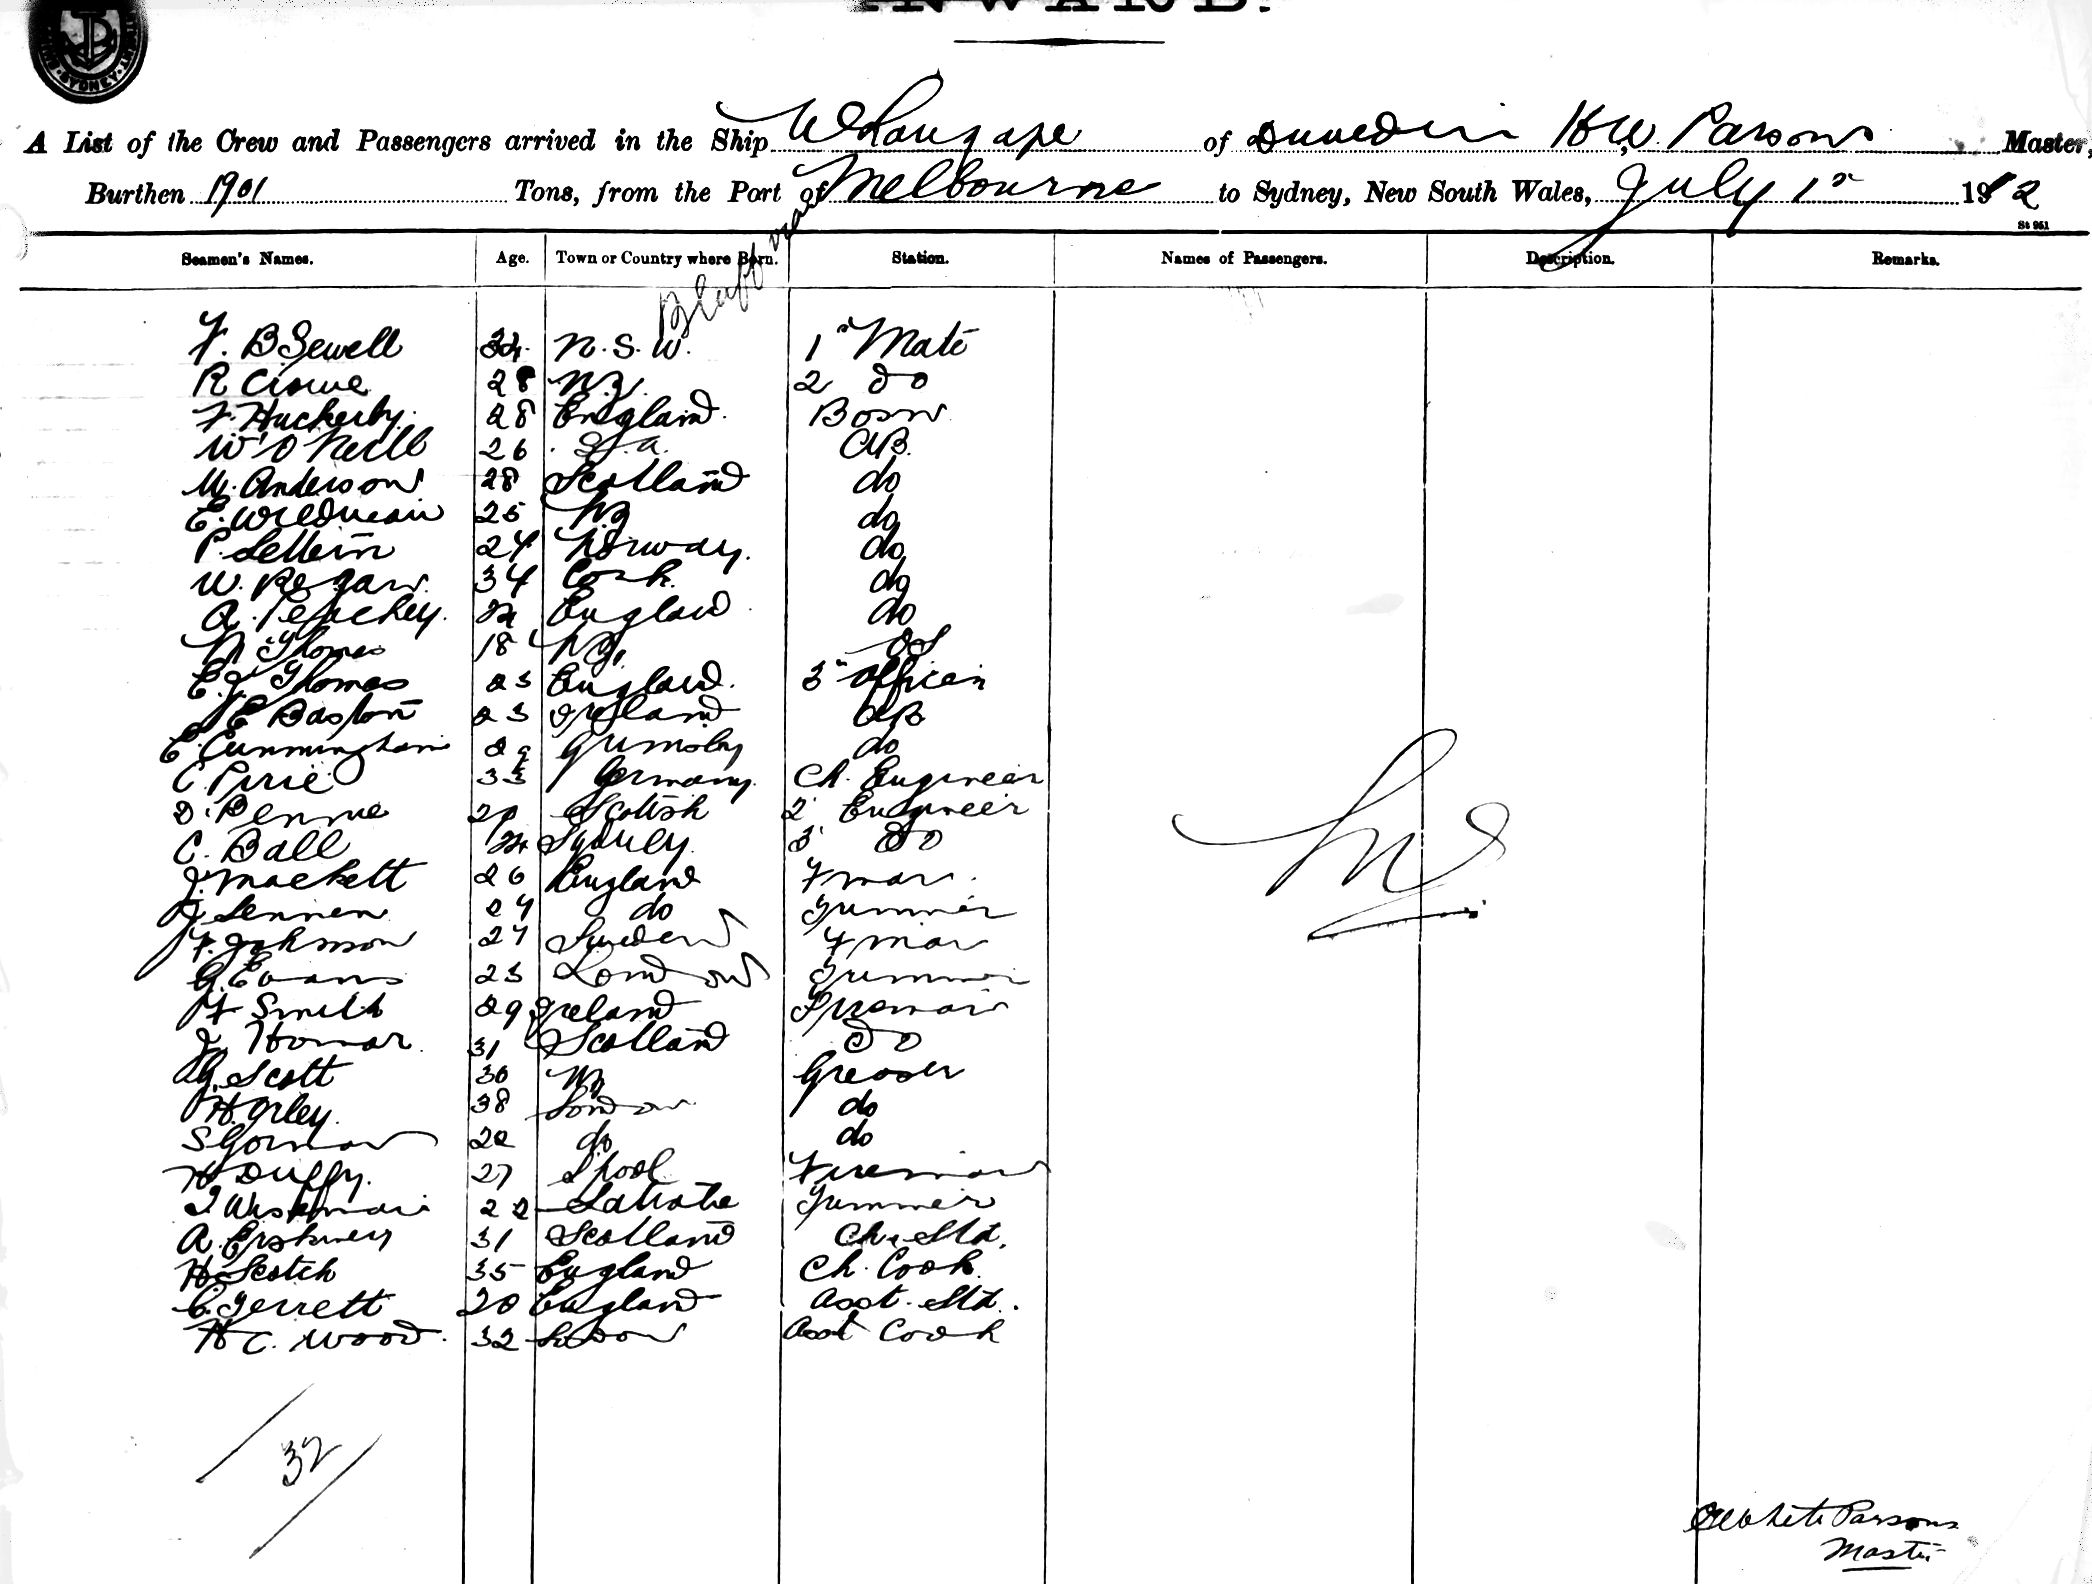 INWARD.
SYDNEY
A List of the Crew and Passengers arrived in the Ship Whangape of Dunedin H W. Parsons Master,
Burthen 1901 Tons, from the Port of Melbourne to Sydney, New South Wales, July 1st 1912
Bluff via
St 951
Seamen's Names. Age. Town or Country where Born. Station. Names of Passengers. Description. Remarks.
F. B Sewell N.S.W. 1st Mate
R 28 N.Z. 2 do
F. Huckerby. 28 England. Bosn
W O'Neill 26 S.a. AB.
M. Anderson 28 Scotland do
E. Wildman 25 NZ do
P. 24 Norway. do
W. Regan. 34 Cork. do
A. Peachey. England do
N Thomas 18 NZ. OS
E.J. Thomas 23 England. 3rd Officer
E Baston 23 Ireland AB
E Cunningham Grimsby do
C. Pirie 33 Germany. Ch. Engineer
D. Rennie Scottish 2 Engineer
C. Ball Sydney. 3 do
J. Mackett 26 England Fman.
J. Lennen 24 do Trimmer
F. Johnson 27 Sweden Fman
G. Evans 23 London Trimmer
F Smith 29 Ireland Fireman
J. Homar. 31 Scotland do
G. Scott 30 NZ Greaser
H. Orley. 38 London do
S Gorman 22 do do
H Duffy. 27 Lpool Fireman
22 Trimmer
A. Erskiney 31 Scotland Ch. Std.
H. Scotch 35 England Ch. Cook.
C. Jerrett 20 England Asst. Std.
H C. Wood. 32 London Asst Cook
32
White Parsons
Master